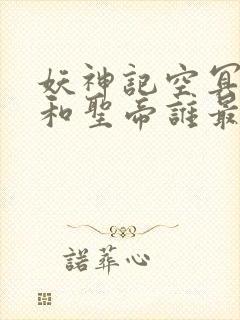 妖神記空冥
和聖帝誰最
諾葬心